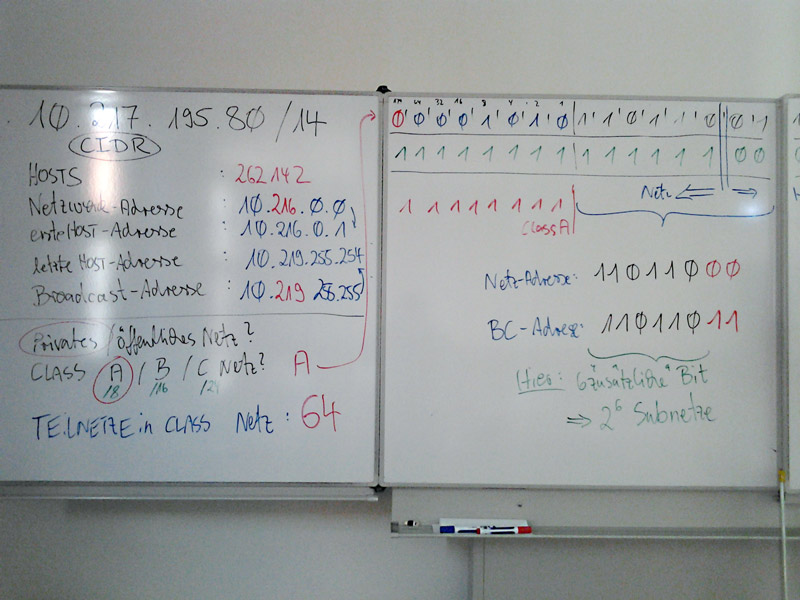 10.217.195.80/14
CIDR
HOSTS : 262142
Netzwerk-Adresse : 10.216.0.0
erste HOST-Adresse : 10.216.0.1
letzte HOST-Adresse : 10.219.255.254
Broadcast-Adresse : 10.219 255.255
Privates/öffentliches Netz?
CLASS A / B / C Netz? A
/8 /16 /24
TEILNETZE in CLASS Netz : 64
64 32 16 8 4 2 1
0 0 0 0 1 0 1 0 1 1 0 1 1 0 0 1
1 1 1 1 1 1 1 1 1 1 1 1 1 1 0 0
Netz
1 1 1 1 1 1 1 1
Class A
Netz-Adresse: 11011000
BC-Adresse: 11011011
Hier: 6 zusätzliche Bit
⇒ 2⁶ Subnetze